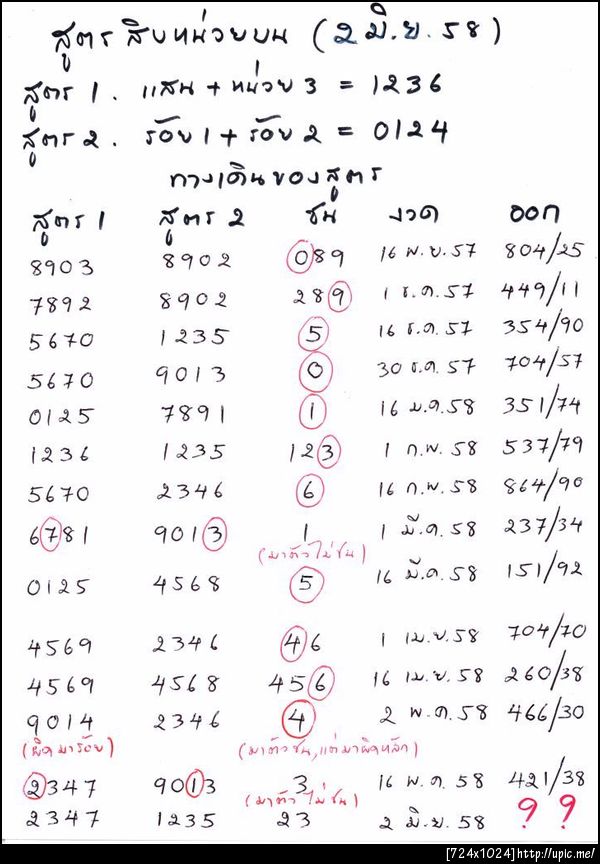 สูตรสิบหน่วยบน (2 มิ.ย. 58)
สูตร 1. แสน + หน่วย 3 = 1236
สูตร 2. ร้อย 1 + ร้อย 2 = 0124
ทางเดินของสูตร
สูตร 1 สูตร 2 ชน งวด ออก
8903 8902 089 16 พ.ย. 57 804/25
7892 8902 289 1 ธ.ค. 57 449/11
5670 1235 5 16 ธ.ค. 57 354/90
5670 9013 0 30 ธ.ค. 57 704/57
0125 7891 1 16 ม.ค. 58 351/74
1236 1235 123 1 ก.พ. 58 537/79
5670 2346 6 16 ก.พ. 58 864/90
6781 9013 1 1 มี.ค. 58 237/34
(มาตัวไม่ชน)
0125 4568 5 16 มี.ค. 58 151/92
4569 2346 46 1 เม.ย. 58 704/70
4569 4568 456 16 เม.ย. 58 260/38
9014 2346 4 2 พ.ค. 58 466/30
(ผิดมาร้อย) (มาตัวชน, แต่มาผิดหลัก)
2347 9013 3 16 พ.ค. 58 421/38
(มาตัวไม่ชน)
2347 1235 23 2 มิ.ย. 58 ? ?
[724x1024]http://upic.me/